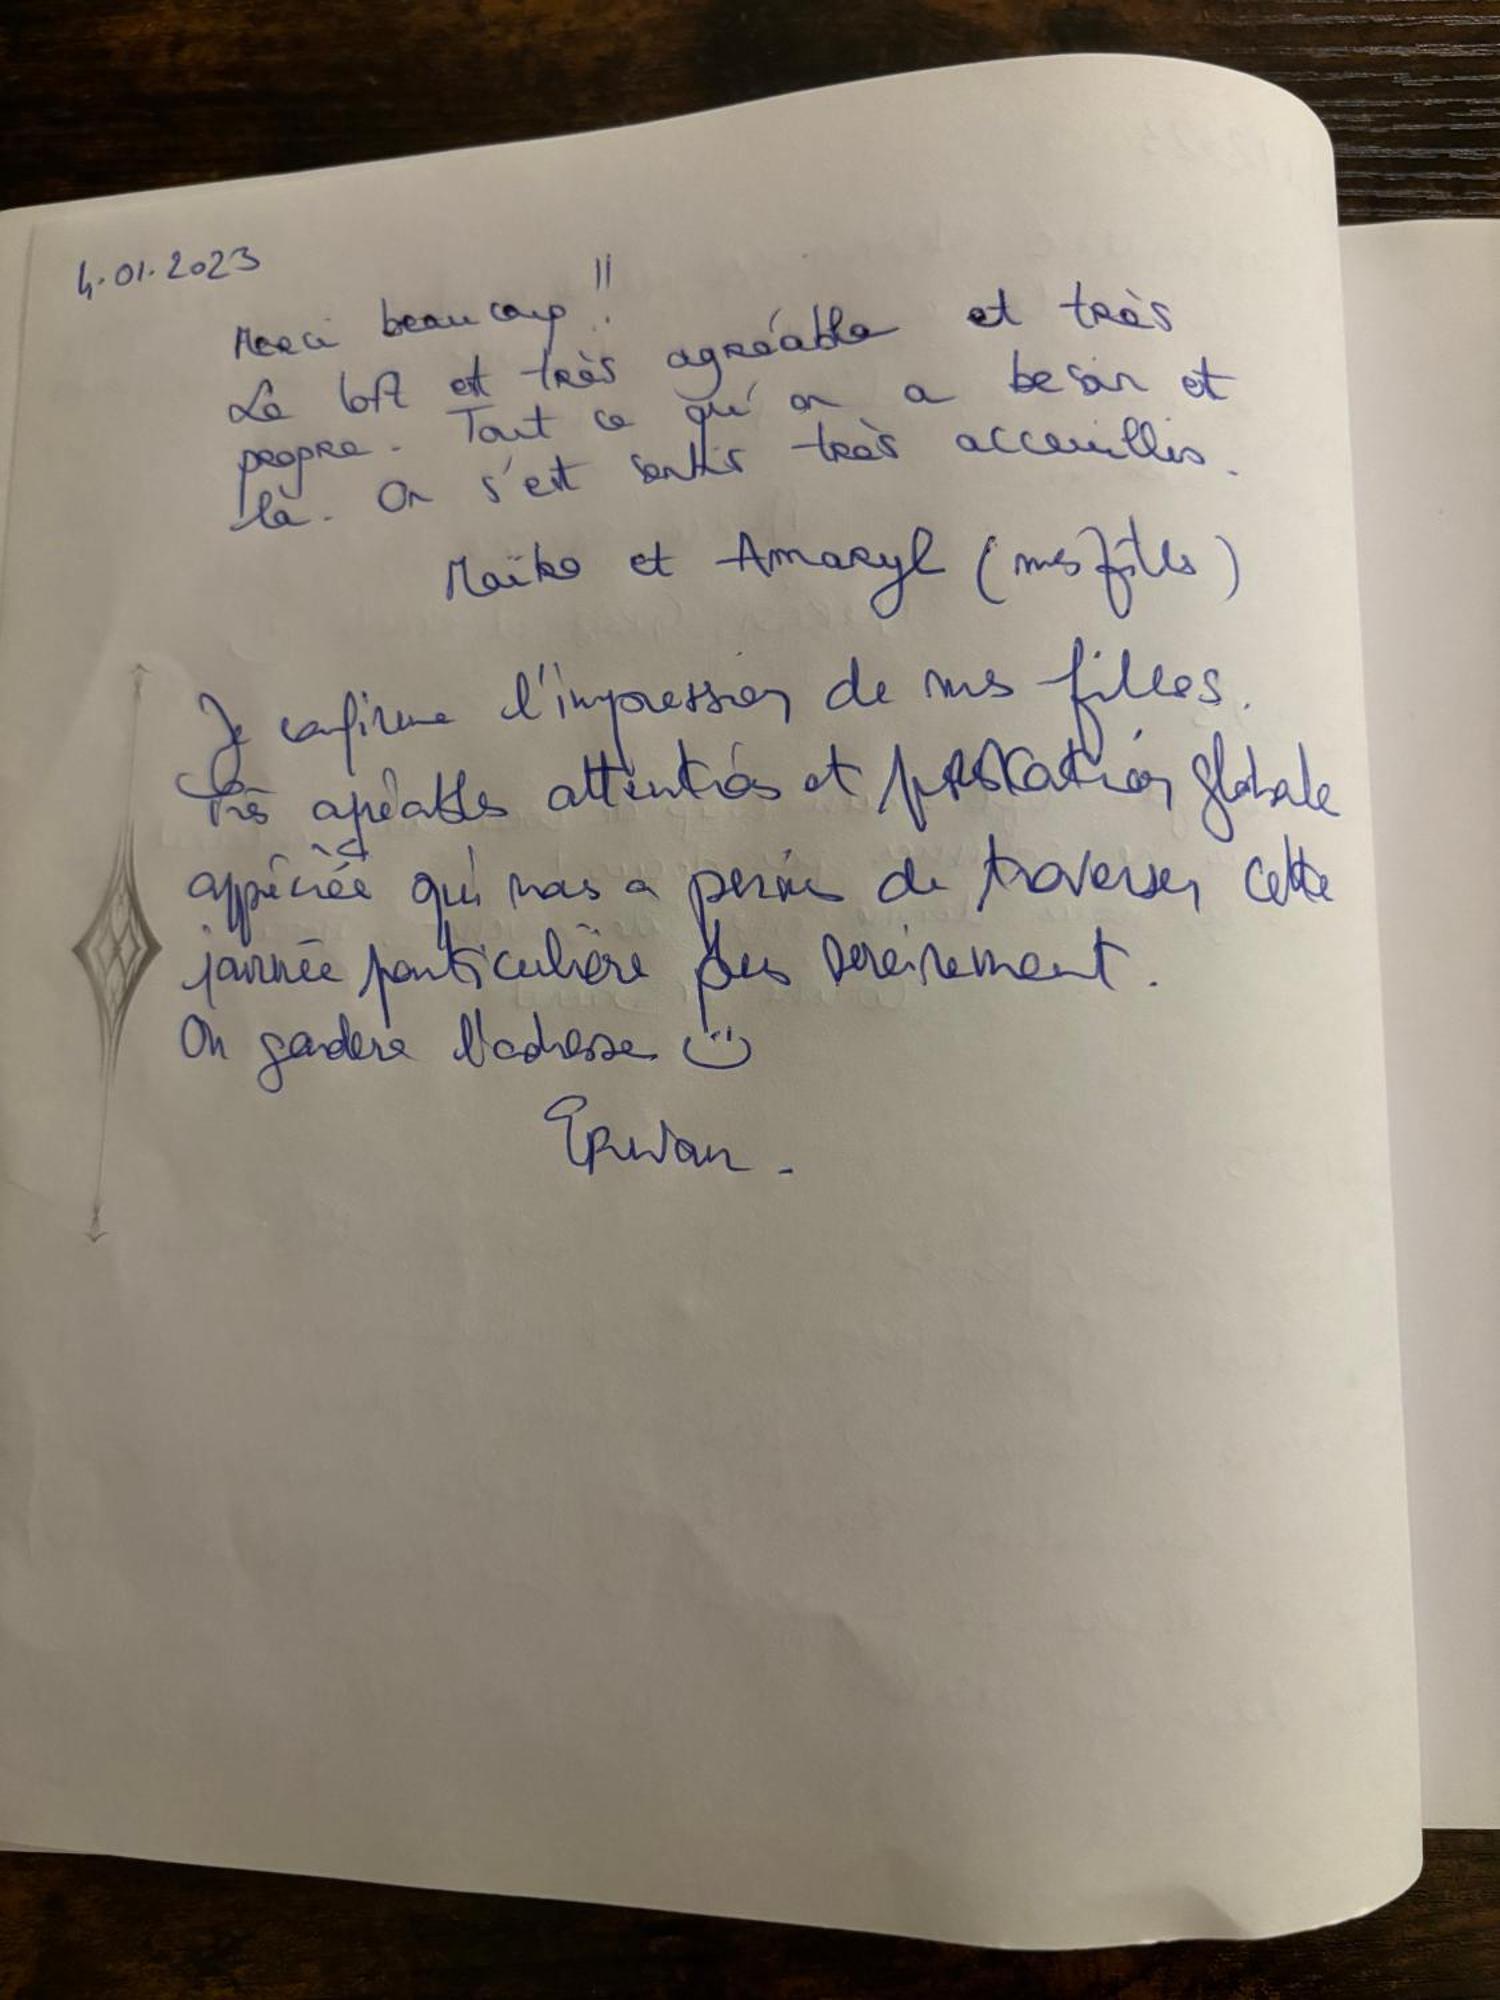 4.01.2023
Merci beaucoup !!
Le loft est très agréable et très
propre. Tout ce qu'on a besoin et
là. On s'est sentis très acceuillis.
Maïko et Amaryl (mes filles)
Je confirme l'impression de mes filles.
Très agréables attentions et prestation globale
appréciée qui nous a permis de traverser cette
journée particulière plus sereinement.
On gardera l'adresse
Erwan.